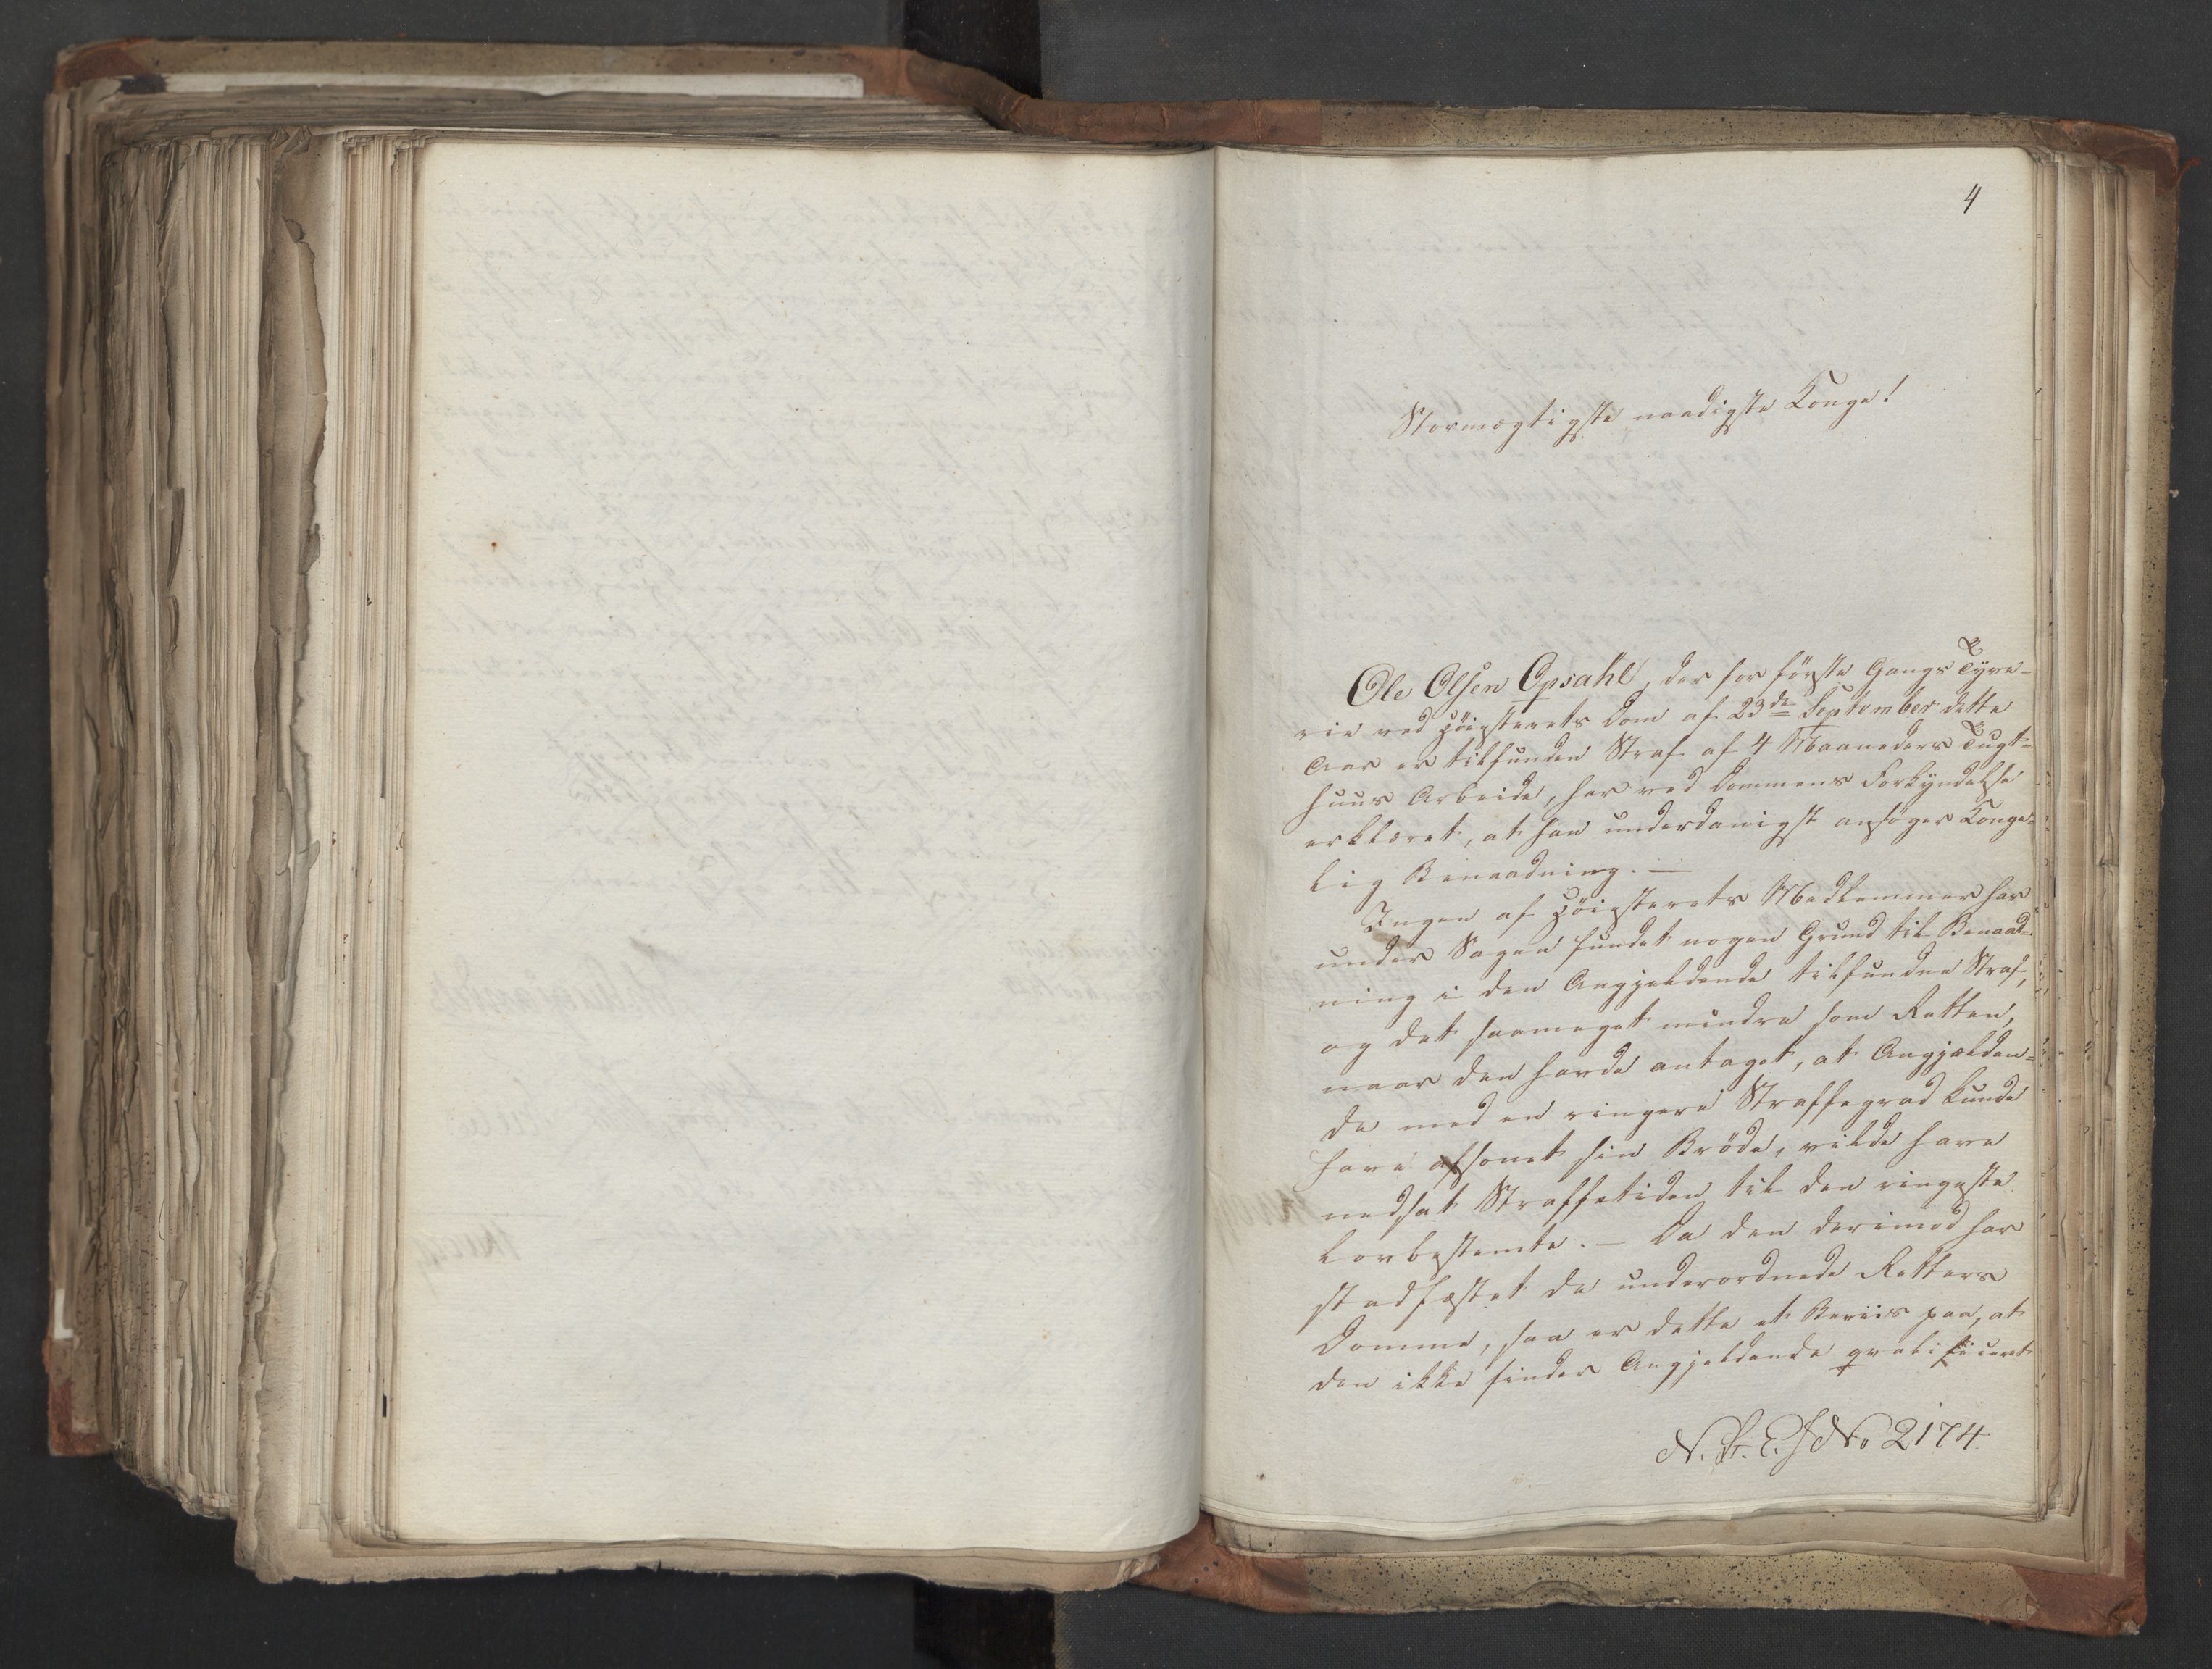 4
Stormægtigste naadigste Konge!
Ole Olsen Opsahl, der for förste Gangs Tyve-
rie ved Höiesterets Dom af 23de September dette
Aar er tilfunden Straf af 4 Maaneders Tugt-
huus Arbeide, har ved Dommens Forkyndelse
erklæret, at han underdanigst ansöger Konge-
lig Benaadning. —
Ingen af Höiesterets Medlemmer har
under Sagen fundet nogen Grund til Benaad-
ning i den Angjeldende tilfundne Straf,
og det saameget mindre som Retten,
naar den havde antaget, at Angjælden-
de med en ringere Straffegrad kunde
have afsonet sin Bröde, vilde have
nedsat Straffetiden til den ringeste
Lovbestemte. — Da den derimod har
stadfæstet de underordnede Retters
Domme, saa er dette et Beviis paa, at
den ikke finder Angjeldende qvalificeret
No 2174.